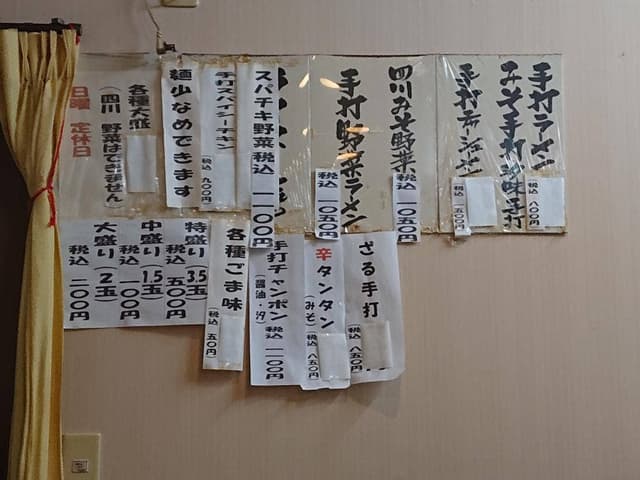 手打ラーメン
税込 八〇〇円
手打チャーシュー
税込
四川みそ野菜
税込 一〇五〇円
手打野菜ラーメン
税込 一〇五〇円
スパチキ野菜 税込 一一〇〇円
手打スパイシーチキン
税込 九〇〇円
麺少なめできます
各種大盛
(四川 野菜はできません)
日曜 定休日
ざる手打
(税込 八五〇円)
辛タンタン
(みそ)
税込 八五〇円
手打チャンポン
(醤油・汐)
税込 一一〇〇円
各種ごま味
(税込 五〇円)
特盛り(3.5玉)
税込 五〇〇円
中盛り(1.5玉)
税込 一〇〇円
大盛り(2玉)
税込 二〇〇円